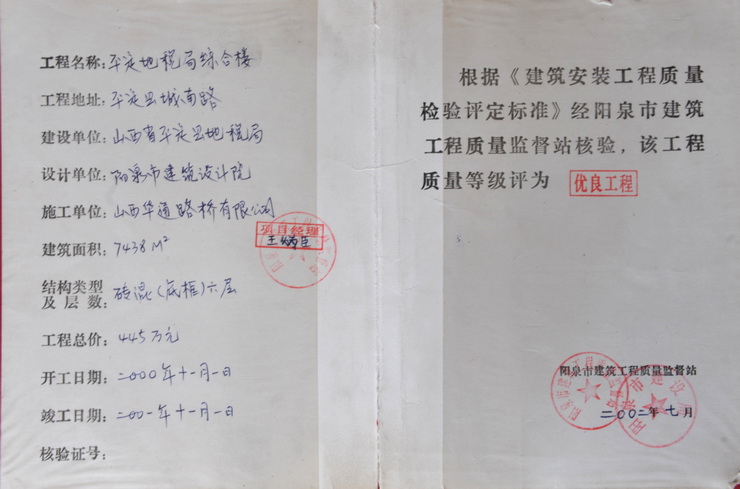 工程名称：平定地税局综合楼
工程地址：平定县城南路
建设单位：山西省平定县地税局
设计单位：阳泉市建筑设计院
施工单位：山西华通路桥有限公司
项目经理
建筑面积：7438 M²
结构类型及层数：砖混（底框）六层
工程总价：445万元
开工日期：二000年十一月一日
竣工日期：二00一年十一月一日
核验证号：
根据《建筑安装工程质量
检验评定标准》经阳泉市建筑
工程质量监督站核验，该工程
质量等级评为 优良工程
阳泉市建筑工程质量监督站
二00二年七月